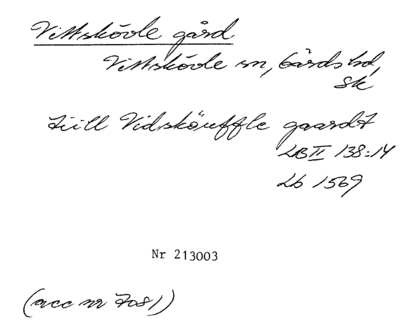 Vittskövle gård
Vittskövle sn, Gärds hd,
Sk
tiill Vidsköuffle gaardt
LB II 138:14
Lb 1569
Nr 213003
(acc nr 7081)